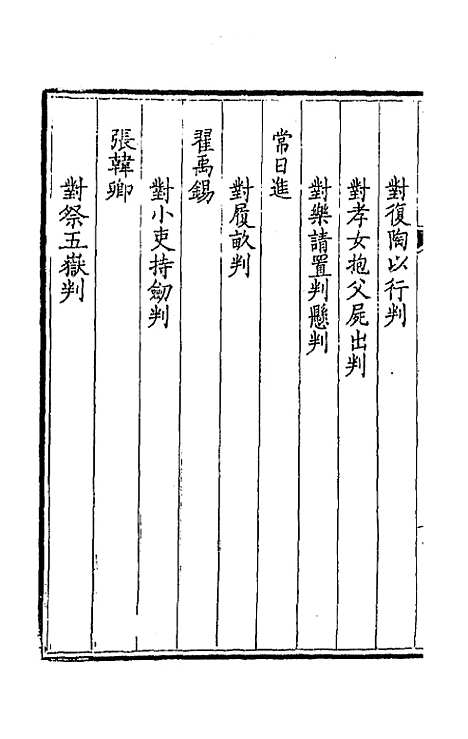 對復陶以行判
對孝女抱父屍出判
對樂請置判懸判
常日進
對履畝判
翟禹錫
對小吏持劒判
張韓卿
對祭五嶽判